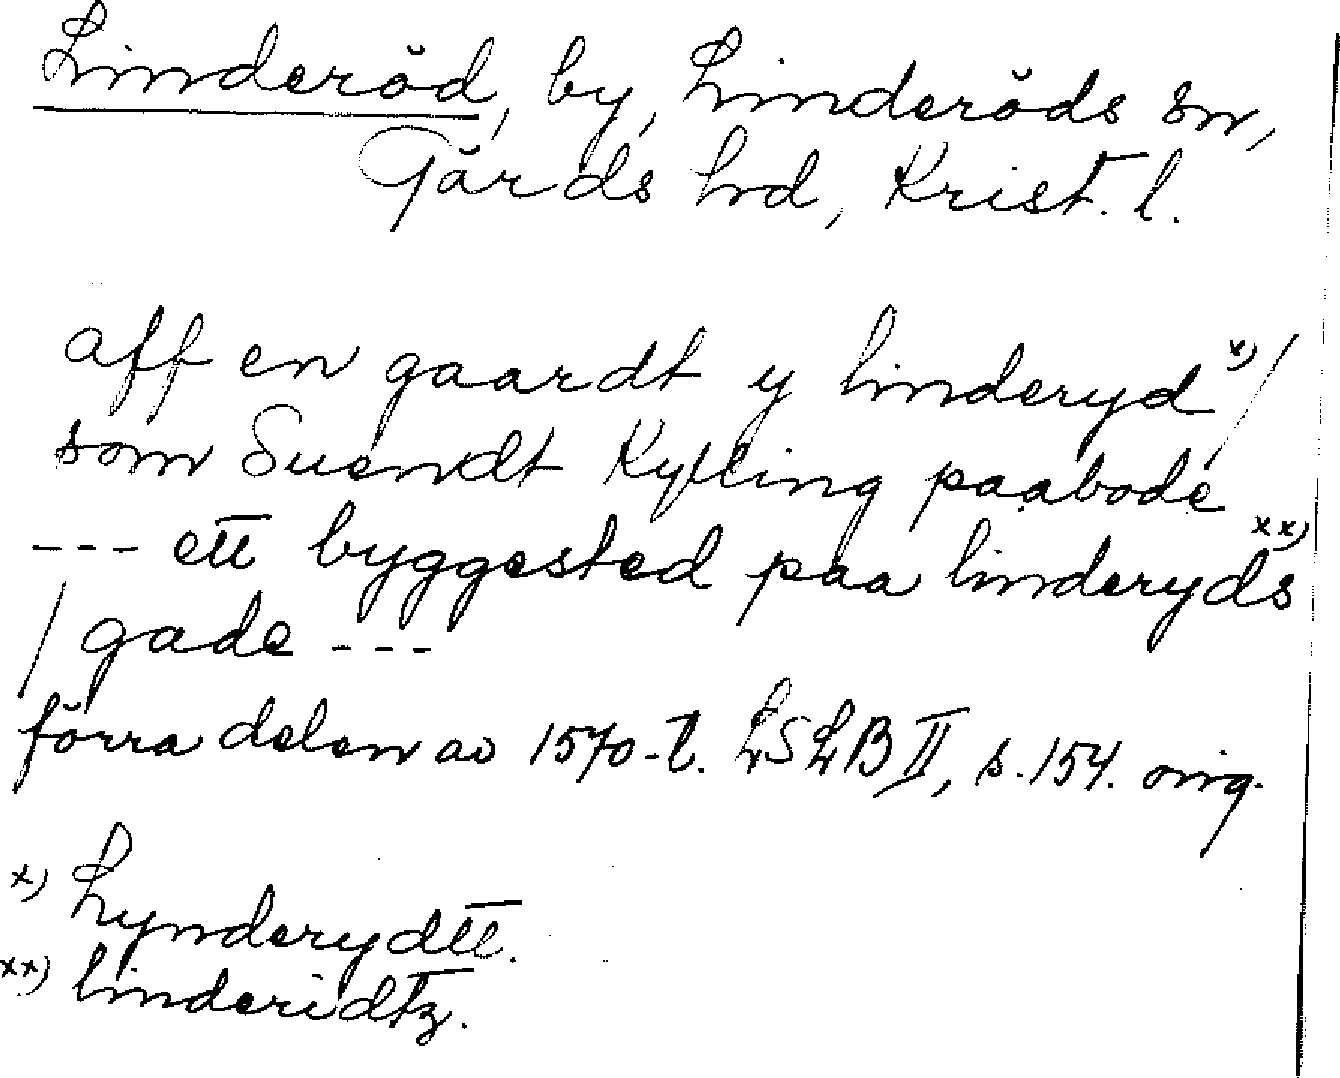 Linderöd, by, Linderöds sn,
Gärds hrd, Krist. l.
aff en gaardt y linderyd x)/
som Suendt Kylling paabode
--- ett byggested paa linderyds xx)
/ gade ---
förra delen av 1570-t. LSLB II, s. 154. orig.
x) Lynderydtt.
xx) linderidtz.